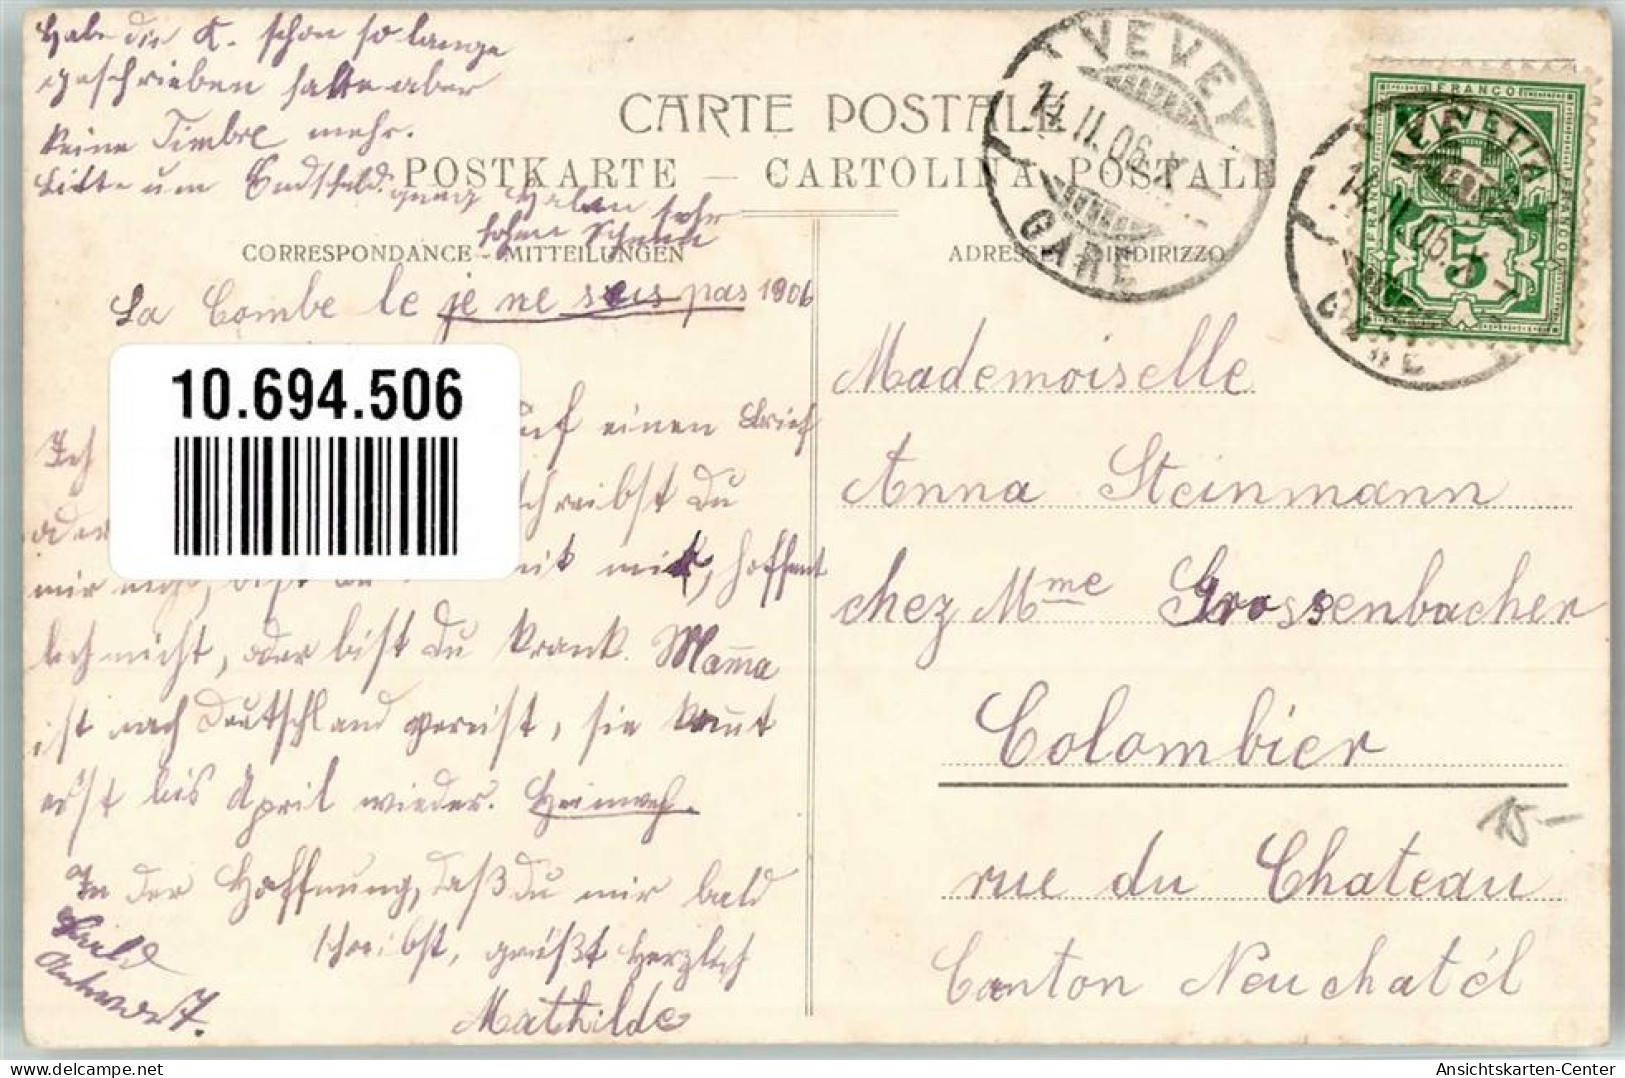 Habe die K. schon so lange
geschrieben hatte aber
keine Timbre mehr.
bitte um Endschuldigung Haben sehr
CARTE POSTALE
POSTKARTE — CARTOLINA POSTALE
CORRESPONDANCE - MITTEILUNGEN
ADRESSE - INDIRIZZO
VEVEY
14.II.06.X
GARE
FRANCO
HELVETIA
5
VEVEY
14.II.06.X
GARE
La Combe le je ne sais pas 1906
10.694.506
Ich auf einen Brief
oder schreibst du
mir nicht, bist du mit mir, hoffent
lich nicht, oder bist du krank. Mama
ist nach Deutschland gereist, sie kommt
erst bis April wieder. Heimweh.
In der Hoffnung, daß du mir bald
schreibst, grüßt herzlich
Mathilde
Bald
Antwort.
Mademoiselle
Anna Steinmann
chez Mme Grossenbacher
Colombier
rue du Chateau
Canton Neuchatél
15-
AnsichtsKarten-Center